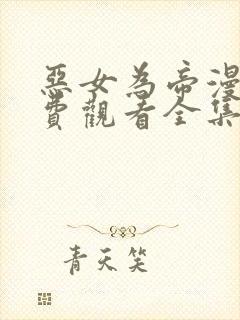 惡女為帝漫
費觀看全集
青天笑